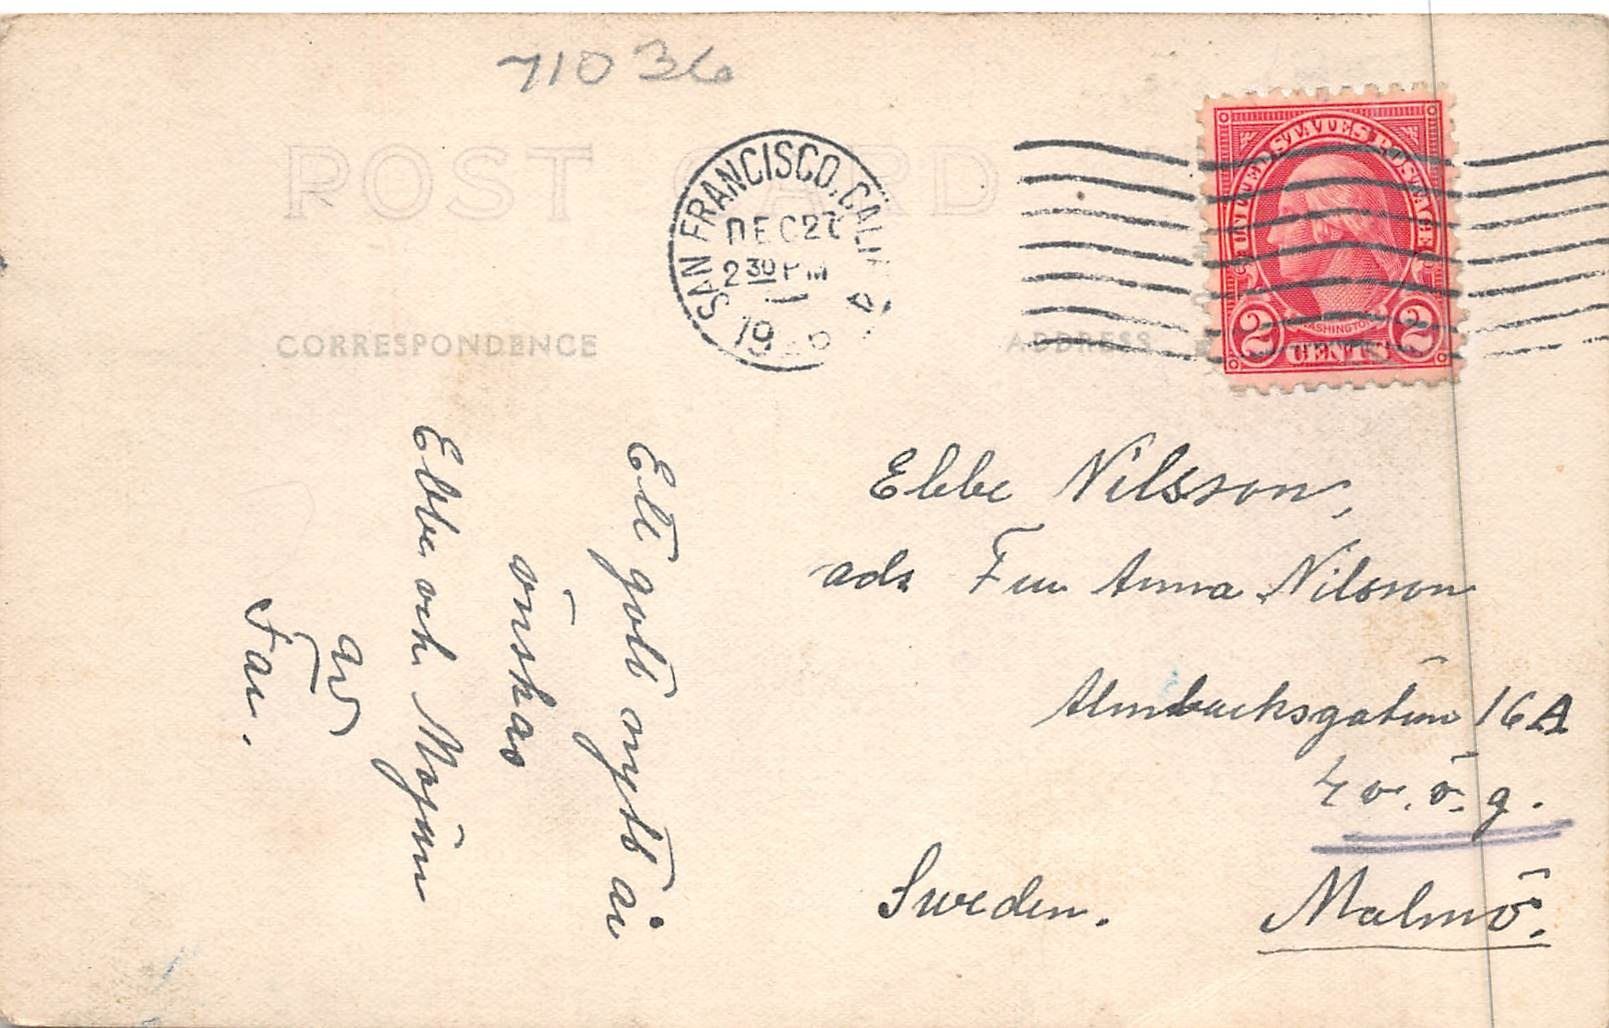 71036
POST CARD
SAN FRANCISCO, CALIF.
DEC 27
2 30 PM
19
UNITED STATES POSTAGE
WASHINGTON
2 CENTS 2
CORRESPONDENCE
ADDRESS
Ett gott nytt år
önskas
Ebbe och Mojen
av
Far.
Ebbe Nilsson,
adr Fru Anna Nilsson
Almbacksgatan 16A
4 v. ö. g.
Malmö.
Sweden.